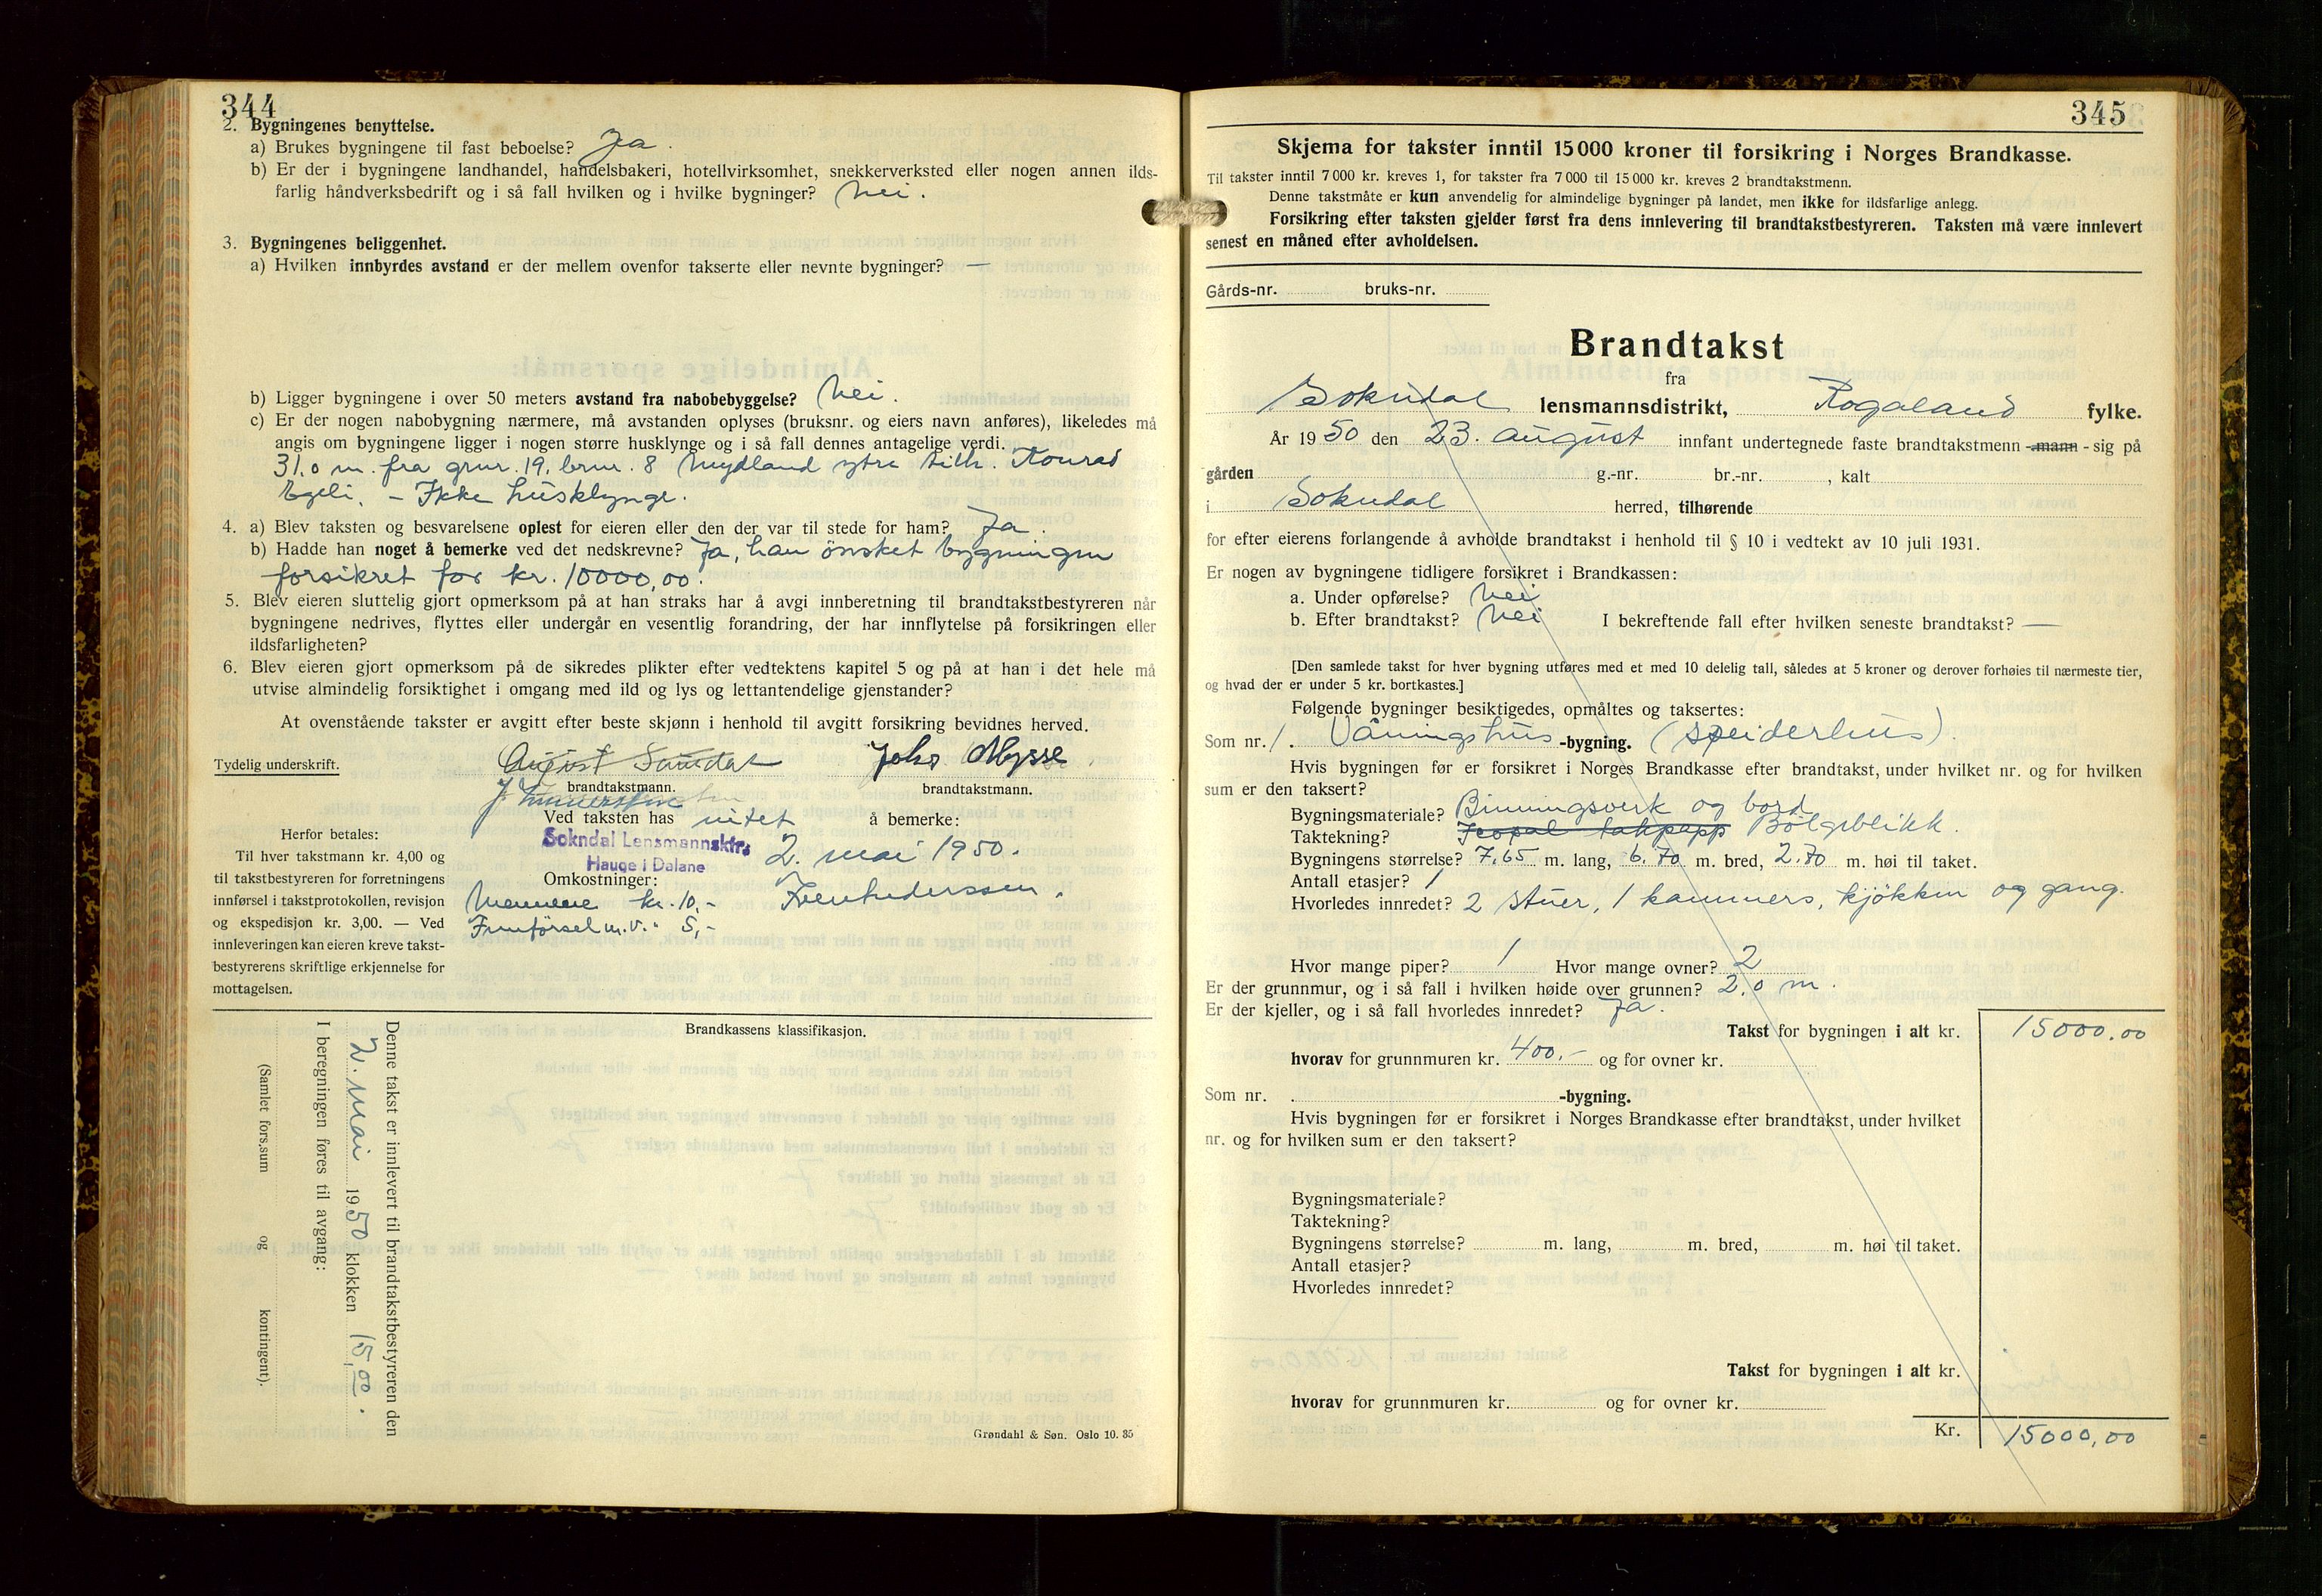 344
2. Bygningenes benyttelse.
a) Brukes bygningene til fast beboelse? Ja.
b) Er der i bygningene landhandel, handelsbakeri, hotellvirksomhet, snekkerverksted eller nogen annen ilds-
farlig håndverksbedrift og i så fall hvilken og i hvilke bygninger? Nei.
3. Bygningenes beliggenhet.
a) Hvilken innbyrdes avstand er der mellem ovenfor takserte eller nevnte bygninger? —
b) Ligger bygningene i over 50 meters avstand fra nabobebyggelse? Nei.
c) Er der nogen nabobygning nærmere, må avstanden oplyses (bruksnr. og eiers navn anføres), likeledes må
angis om bygningene ligger i nogen større husklynge og i så fall dennes antagelige verdi.
31.0 m. fra gnr. 19, brnr. 8 Mydland ytre tilh. Konrad
Egeli. - Ikke husklynge.
4. a) Blev taksten og besvarelsene oplest for eieren eller den der var til stede for ham? Ja.
b) Hadde han noget å bemerke ved det nedskrevne? Ja, han ønsket bygningen
forsikret for kr. 10000,00.
5. Blev eieren sluttelig gjort opmerksom på at han straks har å avgi innberetning til brandtakstbestyreren når
bygningene nedrives, flyttes eller undergår en vesentlig forandring, der har innflytelse på forsikringen eller
ildsfarligheten?
6. Blev eieren gjort opmerksom på de sikredes plikter efter vedtektens kapitel 5 og på at han i det hele må
utvise almindelig forsiktighet i omgang med ild og lys og lettantendelige gjenstander?
At ovenstående takster er avgitt efter beste skjønn i henhold til avgitt forsikring bevidnes herved.
Tydelig underskrift. August John Mysse
brandtakstmann. brandtakstmann.
Ved taksten has intet å bemerke:
Sokndal Lensmannsktr.
Hauge i Dalane 2. mai 1950.
Omkostninger:
Mennene kr. 10,-
Fremførsel m.v. " 5,-
Herfor betales:
Til hver takstmann kr. 4,00 og
til takstbestyreren for forretningens
innførsel i takstprotokollen, revisjon
og ekspedisjon kr. 3,00. — Ved
innleveringen kan eieren kreve takst-
bestyrerens skriftlige erkjennelse for
mottagelsen.
Brandkassens klassifikasjon.
Denne takst er innlevert til brandtakstbestyreren den
2. Mai 1950 klokken 15,00.
I beregningen føres til avgang:
(Samlet fors.sum og kontingent).
Grøndahl & Søn. Oslo 10. 35
345
Skjema for takster inntil 15 000 kroner til forsikring i Norges Brandkasse.
Til takster inntil 7 000 kr. kreves 1, for takster fra 7 000 til 15 000 kr. kreves 2 brandtakstmenn.
Denne takstmåte er kun anvendelig for almindelige bygninger på landet, men ikke for ildsfarlige anlegg.
Forsikring efter taksten gjelder først fra dens innlevering til brandtakstbestyreren. Taksten må være innlevert
senest en måned efter avholdelsen.
Gårds-nr. bruks-nr.
Brandtakst
fra
Sokndal lensmannsdistrikt, Rogaland fylke.
År 1950 den 23. august innfant undertegnede faste brandtakstmenn -mann- sig på
gården g.-nr. br.-nr. , kalt
i Sokndal herred, tilhørende
for efter eierens forlangende å avholde brandtakst i henhold til § 10 i vedtekt av 10 juli 1931.
Er nogen av bygningene tidligere forsikret i Brandkassen:
a. Under opførelse? Nei
b. Efter brandtakst? Nei I bekreftende fall efter hvilken seneste brandtakst? —
[Den samlede takst for hver bygning utføres med et med 10 delelig tall, således at 5 kroner og derover forhøies til nærmeste tier,
og hvad der er under 5 kr. bortkastes.]
Følgende bygninger besiktigedes, opmåltes og taksertes:
Som nr. 1. Våningshus -bygning. (speiderhus).
Hvis bygningen før er forsikret i Norges Brandkasse efter brandtakst, under hvilket nr. og for hvilken
sum er den taksert?
Bygningsmateriale? Binningsverk og bord
Taktekning? takpapp Bölgeblikk.
Bygningens størrelse? 7.65 m. lang, 6.70 m. bred, 2.70 m. høi til taket.
Antall etasjer? 1
Hvorledes innredet? 2 stuer, 1 kammers, kjökken og gang.
Hvor mange piper? 1 Hvor mange ovner? 2
Er der grunnmur, og i så fall i hvilken høide over grunnen? 2,0 m.
Er der kjeller, og i så fall hvorledes innredet? Ja.
Takst for bygningen i alt kr. 15000.00
hvorav for grunnmuren kr. 400.- og for ovner kr.
Som nr. . -bygning.
Hvis bygningen før er forsikret i Norges Brandkasse efter brandtakst, under hvilket
nr. og for hvilken sum er den taksert?
Bygningsmateriale?
Taktekning?
Bygningens størrelse? m. lang, m. bred, m. høi til taket.
Antall etasjer?
Hvorledes innredet?
Takst for bygningen i alt kr.
hvorav for grunnmuren kr. og for ovner kr.
Kr. 15000,00